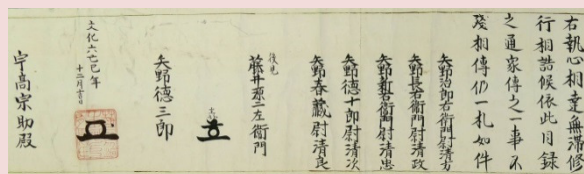 右執心相重無滞修
行相詰候依此目録
之通家傳之一事不
残相傳仍一札如件
矢野治郎右衛門尉清方
矢野長右衛門尉清政
矢野勘右衛門尉清忠
矢野徳十郎尉清次
矢野春蔵尉清良
後見
藤井源二左衛門
矢野徳三郎
文化六己巳年
十二月吉日
宇高宗助殿